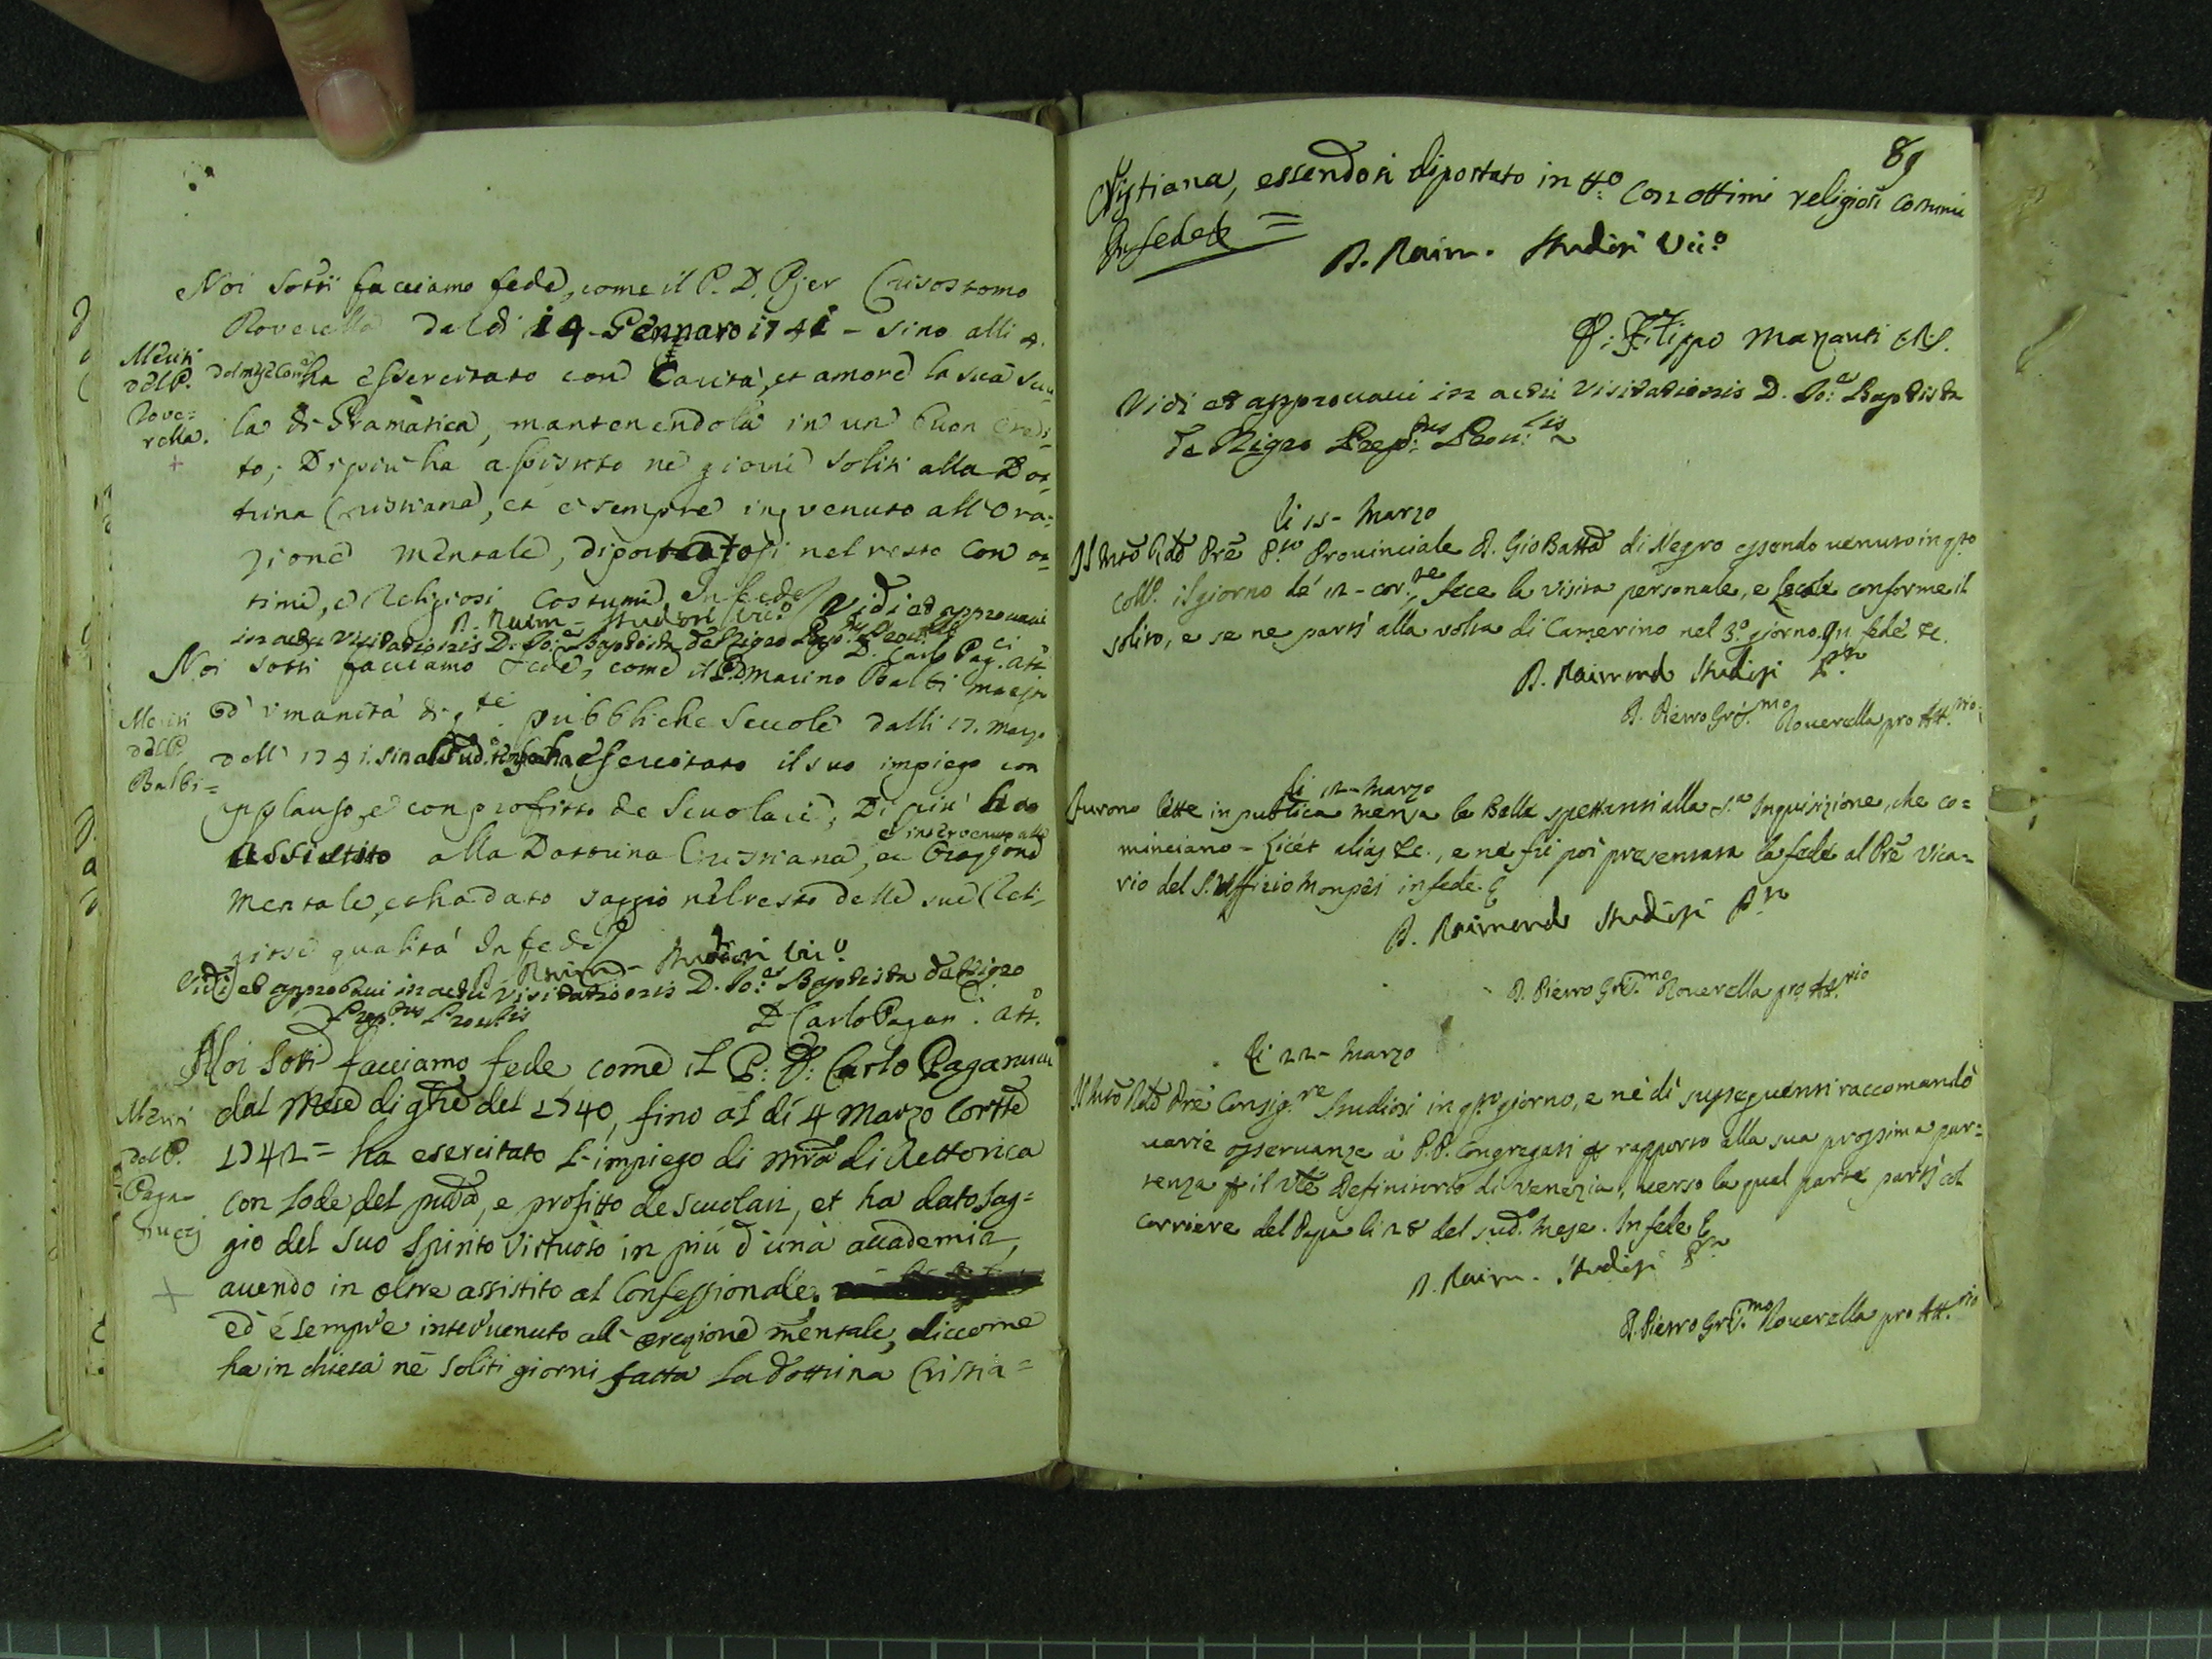 Noi sotti facciamo fede, come il P. D. Pier Crisostomo
Roverella dal dì 14 Gennaro 1741 - sino alli 4.
Meriti
del P.
Rove=
rella.
+
del mese Corr.e ha essercitato con Carità, et amore la sua scuo-
la di Gramatica, mantenendola in un buon credi-
to; Di più ha assistito ne giorni soliti alla Dot-
trina Cristiana, et è sempre intervenuto all'Ora-
zione mentale, diportatosi nel resto con ot-
timi, e Religiosi Costumi, In fede
D. Raim - Studiosi Vic.o Vidi et approvavi
in actu Visitationis D. Jo: Baptista de Nigro Prep.tus Prov.lis
D. Carlo Pag.ci Att.o
Noi sotti facciamo fede, come il P. D. Marino Balbi maestro
Meriti
del P.
Balbi =
d'umanità di q.te pubbliche Scuole dalli 17. Marzo
dell' 1741. sin al sud. tempo ha essercitato il suo impiego con
applauso, e con profitto de Scuolari, Di più ha
assistito alla Dottrina Cristiana, et Orazione
è intervenuto alle
mentale, et ha dato saggio nel resto delle sue Reli-
giose qualità In fede
D. Raim - Studiosi Vic.o
Vidi et approbavi in actu Visitationis D. Jo: Baptista de Nigro
Prep.tus Prov.lis D. Carlo Pagan.ci Att.o
Noi sotti facciamo fede come il P: D: Carlo Paganucci
Meriti
del P.
Paga=
nuczj
+
dal Mese di 9bre del 1740, fino al dì 4 Marzo Corrte
1742 = ha esercitato l'impiego di Mrõ di Rettorica
con lode del pubb, e profitto de scuolari, et ha dato sag=
gio del suo Spirito Virtuoso in più d'una accademia,
avendo in oltre assistito al Confessionale,
ed è sempre intervenuto all' orazione mentale, siccome
ha in chiesa nè soliti giorni fatta la dottrina Cristia=
89
Cristiana, essendosi diportato in tt.o con ottimi religiosi costumi
In fede =
D. Raim. Studiosi Vic.o
D. Filippo Manauti CRS.
Vidi et approvavi in actu Visitationis D. Jo: Baptista
de Nigro Prep:tus Prov:lis
li 15 - Marzo
Il Mtõ Rdõ Prẽ P.to Provinciale D. Gio Batta di Negro essendo venuto in qsto
coll.o il giorno de' 12 - cor.te, fece la visita personale, e locale conforme il
solito, e se ne partì alla volta di Camerino nel 3.o giorno. In fede &c.
D. Raimondo Studiosi
D. Pietro Gris.mo Roverella pro Att.rio
li 12 - Marzo
furono lette in publica mensa le Bolle spettanti alla S.a Inquisizione, che co=
minciano - Licet alias &c., e ne fù poi presentata la fede al Prẽ Vica=
rio del S. Uffizio in fede.
D. Raimondo Studiosi
D. Pietro Gris.mo Roverella pro Att.rio
li 22 - Marzo
Il Mtõ Rdõ Prẽ Consig.re Studiosi in qsto giorno, e ne dì susseguenti raccomandò
varie osservanze a' P.P. Congregati rapporto alla sua prossima par=
tenza p il Vle Definitorio di Venezia, verso la qual parte partì col
corriere del Papa li 28 del sud.o mese. In fede
D. Raim. Studiosi
D. Pietro Gris.mo Roverella pro Att.rio